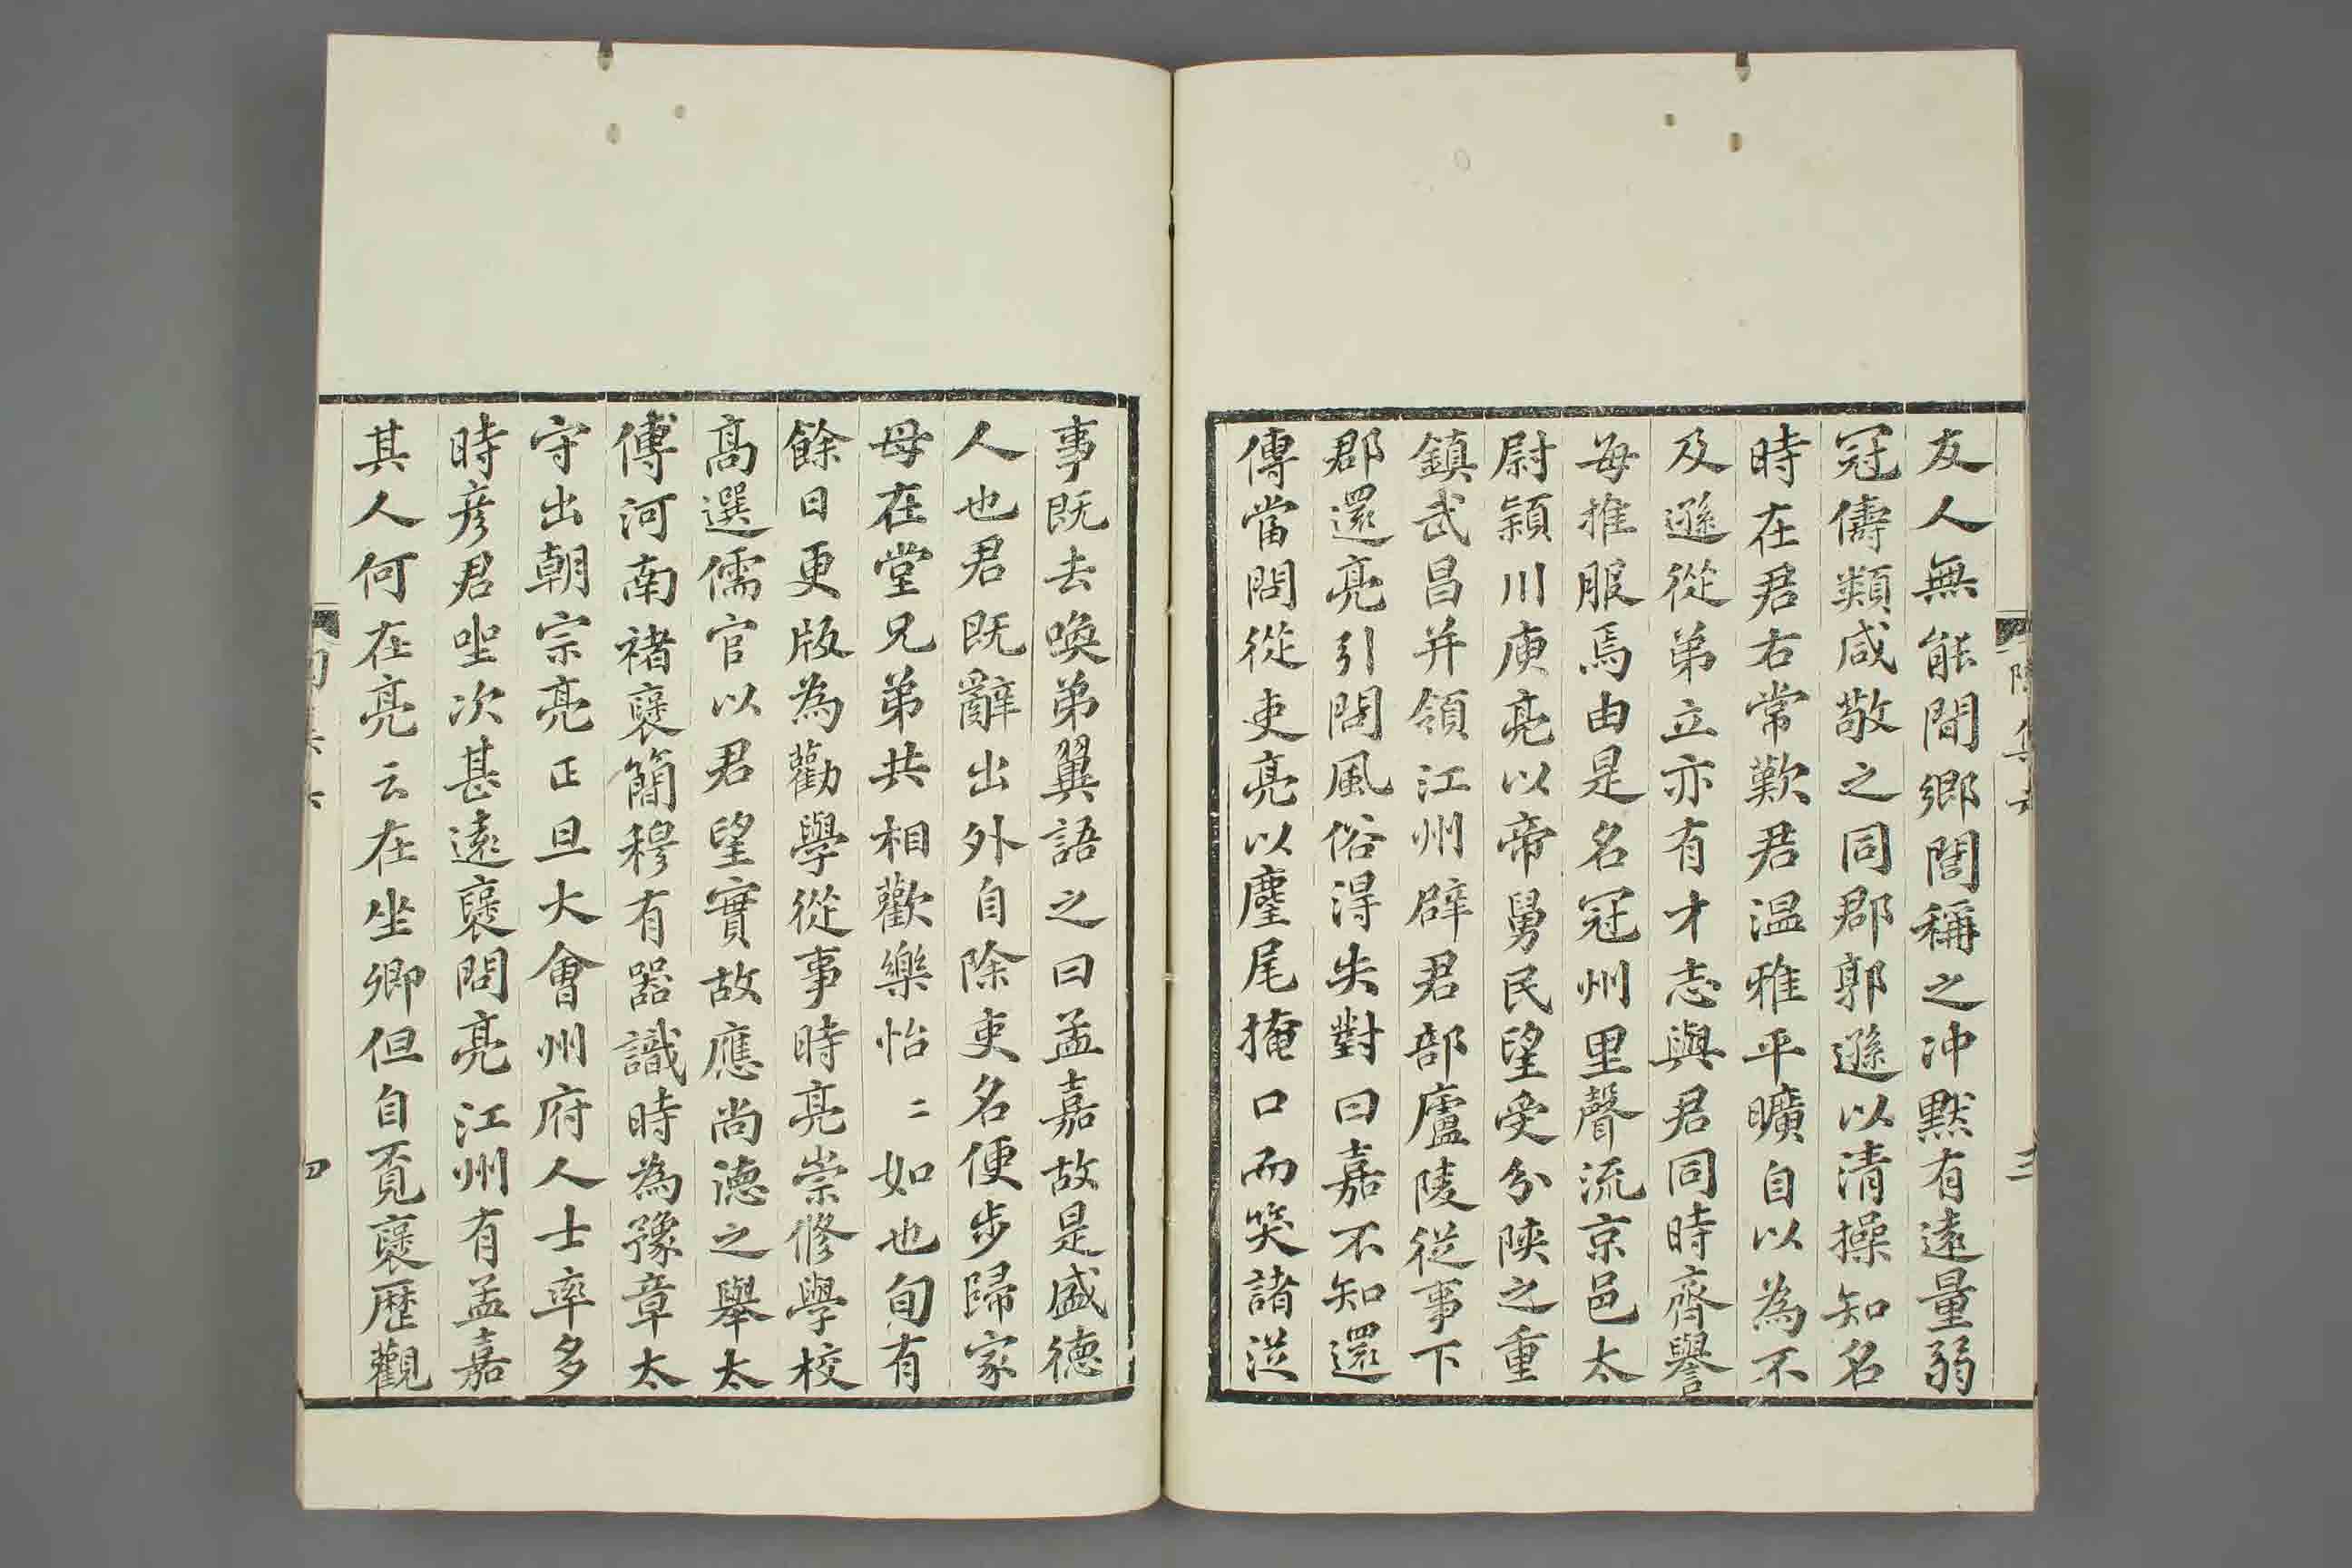 友人無能間鄉閭稱之冲默有遠量弱
冠儔類咸敬之同郡郭遜以清操知名
時在君右常歎君温雅平曠自以為不
及遜從弟立亦有才志與君同時齊譽
每推服焉由是名冠州里聲流京邑太
尉潁川庾亮以帝舅民望受分陝之重
鎮武昌并領江州辟君部廬陵從事下
郡還亮引問風俗得失對曰嘉不知還
傳當問從吏亮以麈尾掩口而笑諸從
事既去喚弟翼語之曰孟嘉故是盛德
人也君既辭出外自除吏名便步歸家
母在堂兄弟共相歡樂怡〻如也旬有
餘日更版為勸學從事時亮崇修學校
高選儒官以君望實故應尚德之舉太
傅河南褚裒簡穆有器識時為豫章太
守出朝宗亮正旦大會州府人士率多
時彥君坐次甚遠裒問亮江州有孟嘉
其人何在亮云在坐卿但自覔裒歷觀